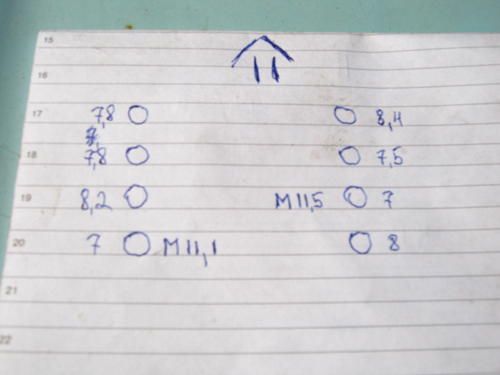 15
16
17 7,8 8,4
18 7,8 7,5
19 8,2 M11,5 7
20 7 M11,1 8
21
22